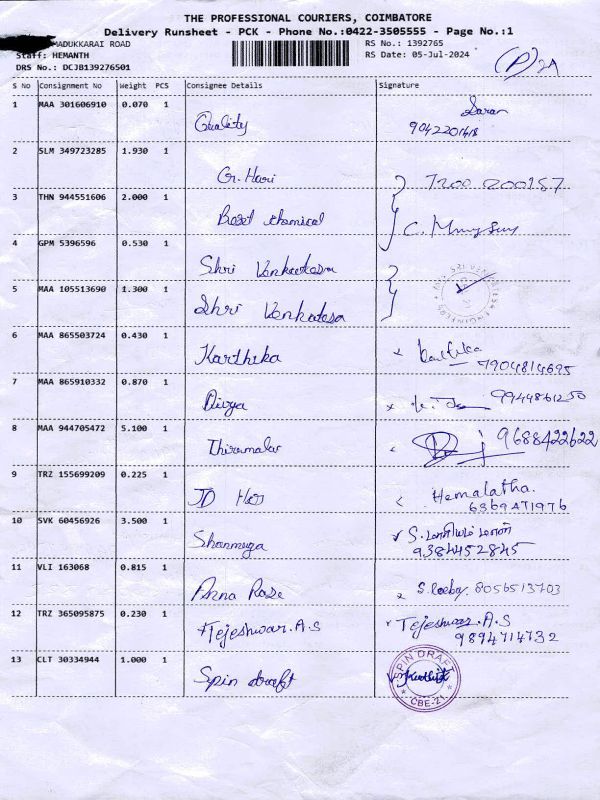 THE PROFESSIONAL COURIERS, COIMBATORE
Delivery Runsheet - PCK - Phone No.:0422-3505555 - Page No.:1
MADUKKARAI ROAD
RS No.: 1392765
Staff: HEMANTH
RS Date: 05-Jul-2024
DRS No.: DCJB139276501
(P) 2A
S No Consignment No Weight PCS Consignee Details Signature
1 MAA 301606910 0.070 1
Quality
Saran
2 SLM 349723285 1.930 1
Gr. Hari
7200 200157
3 THN 944551606 2.000 1
chemical
C.
4 GPM 5396596 0.530 1
Shri Venkatesa
5 MAA 105513690 1.300 1
Shri Venkatesa
6 MAA 865503724 0.430 1
Karthika
7904814695
7 MAA 865910332 0.870 1
Divya
9944861250
8 MAA 944705472 5.100 1
Thirumalai
9688422622
9 TRZ 155699209 0.225 1
JD
Hemalatha.
6369471976
10 SVK 60456926 3.500 1
Shanmuga
9384452845
11 VLI 163068 0.815 1
Anna Rase
8056513703
12 TRZ 365095875 0.230 1
Tejeshwar.A.S
Tejeshwar.A.S
9894714732
13 CLT 30334944 1.000 1
Spin draft
SPIN DRAFT
CBE-21